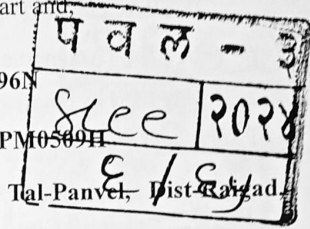 art and,
प व ल - ३
96N
२०२४
PM0509H
६ / ६५
Tal-Panvel, Dist-Raigad.